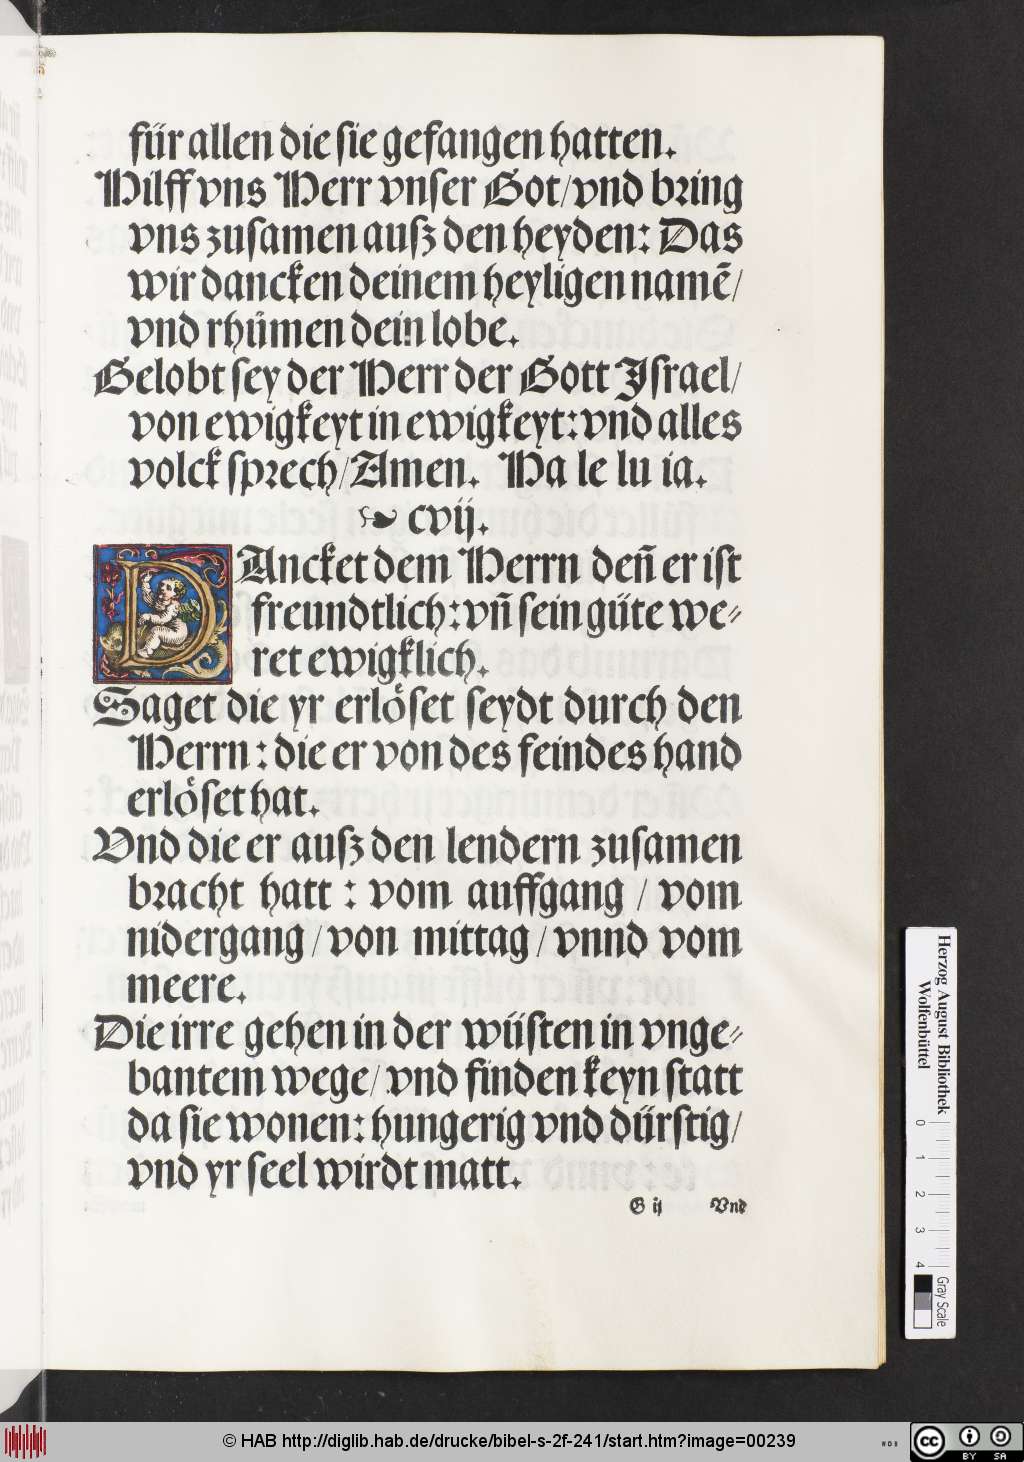 für allen die sie gefangen hatten.
Hilff vns Herr vnser Got/vnd bring
vns zusamen auß den heyden: Das
wir dancken deinem heyligen namē/
vnd rhümen dein lobe.
Gelobt sey der Herr der Gott Israel/
von ewigkeyt in ewigkeyt: vnd alles
volck sprech/Amen. Ha le lu ia.
❧ cvij.
DAncket dem Herrn deñ er ist
freundtlich: vñ sein güte we⸗
ret ewigklich.
Saget die yr erlöset seydt durch den
Herrn: die er von des feindes hand
erlöset hat.
Vnd die er auß den lendern zusamen
bracht hatt: vom auffgang / vom
nidergang/von mittag/vnnd vom
meere.
Die irre gehen in der wüsten in vnge⸗
bantem wege/vnd finden keyn statt
da sie wonen: hungerig vnd dürstig/
vnd yr seel wirdt matt.
G ij Vnd
Herzog August Bibliothek
Wolfenbüttel
0 1 2 3 4
Gray Scale
© HAB http://diglib.hab.de/drucke/bibel-s-2f-241/start.htm?image=00239
WDB
cc BY SA